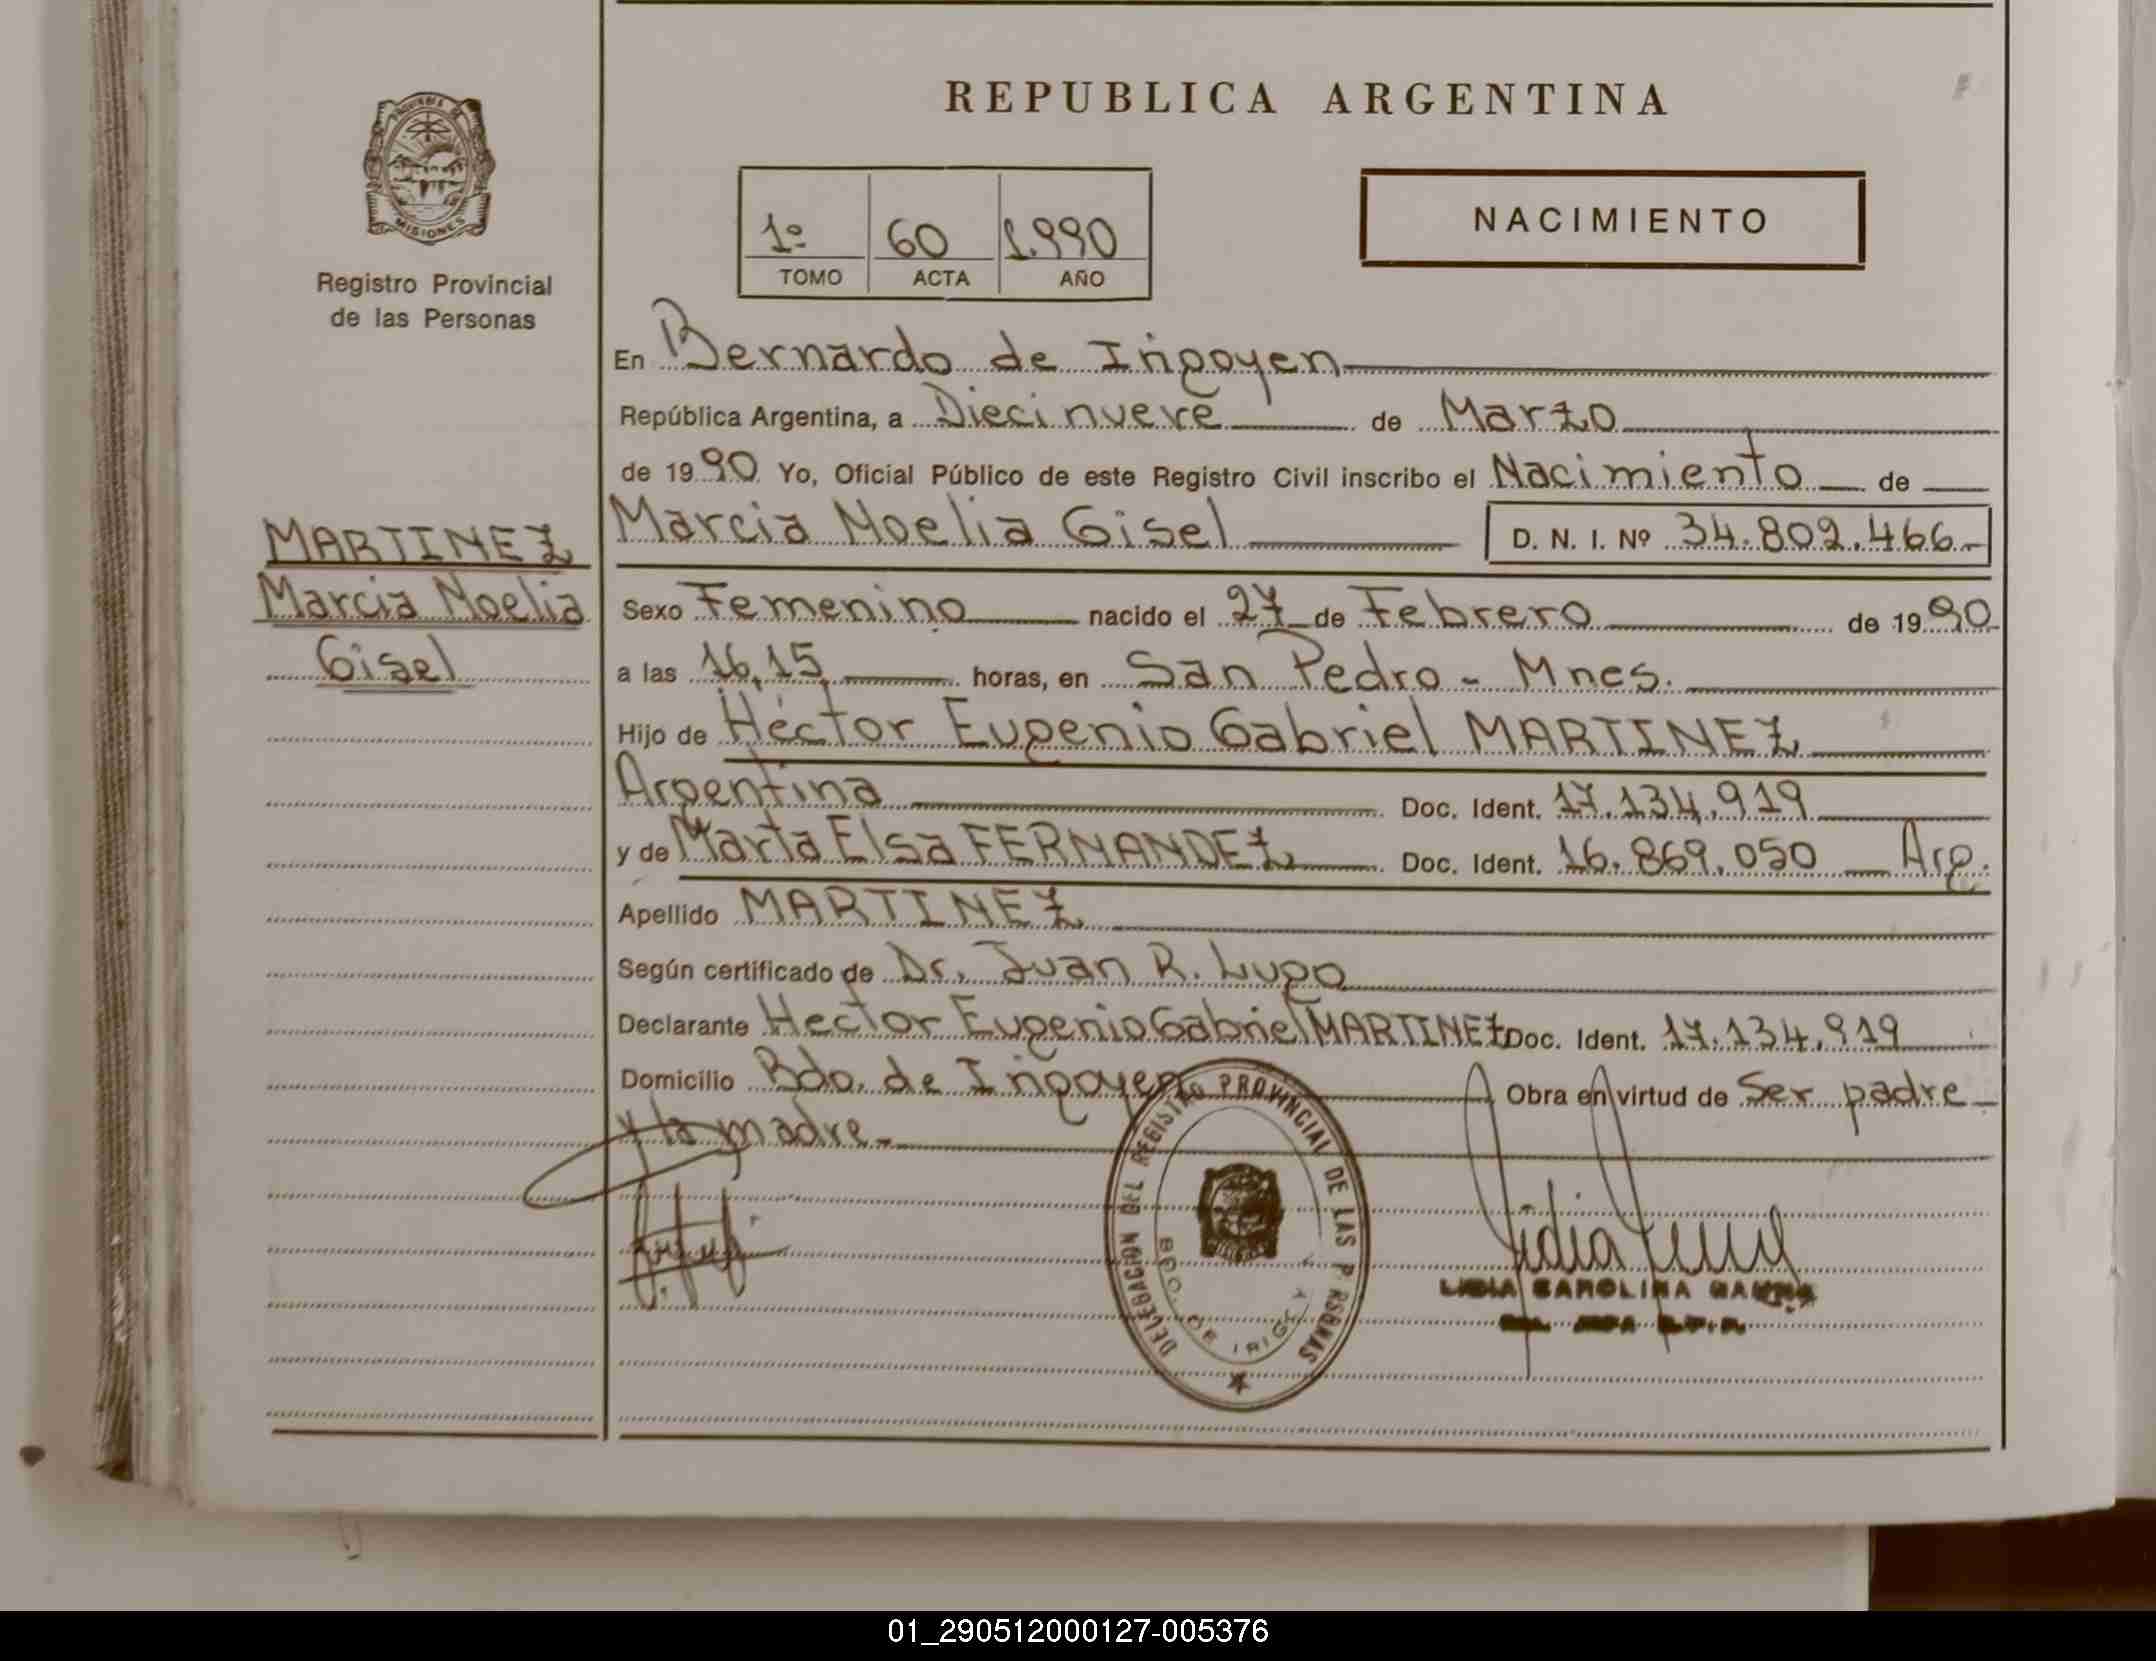 REPUBLICA ARGENTINA
MISIONES
Registro Provincial
de las Personas
1º 60 1.990
TOMO ACTA AÑO
NACIMIENTO
En Bernardo de Irigoyen
República Argentina, a Diecinueve de Marzo
de 1990 Yo, Oficial Público de este Registro Civil inscribo el Nacimiento de
Marcia Noelia Gisel D. N. I. Nº 34.802.466
MARTINEZ
Marcia Noelia
Gisel
Sexo Femenino nacido el 27 de Febrero de 1990
a las 16,15 horas, en San Pedro - Mnes.
Hijo de Héctor Eugenio Gabriel MARTINEZ
Argentina Doc. Ident. 17.134.919
y de Marta Elsa FERNANDEZ Doc. Ident. 16.869.050 Arg.
Apellido MARTINEZ
Según certificado de Dr. Juan R. Lugo
Declarante Hector Eugenio Gabriel MARTINEZ Doc. Ident. 17.134.919
Domicilio Bdo. de Irigoyen Obra en virtud de Ser padre
y la madre
DELEGACION DEL REGISTRO PROVINCIAL DE LAS P RSONAS
BDO. DE IRIGOY
LIDIA CAROLINA
01_290512000127-005376